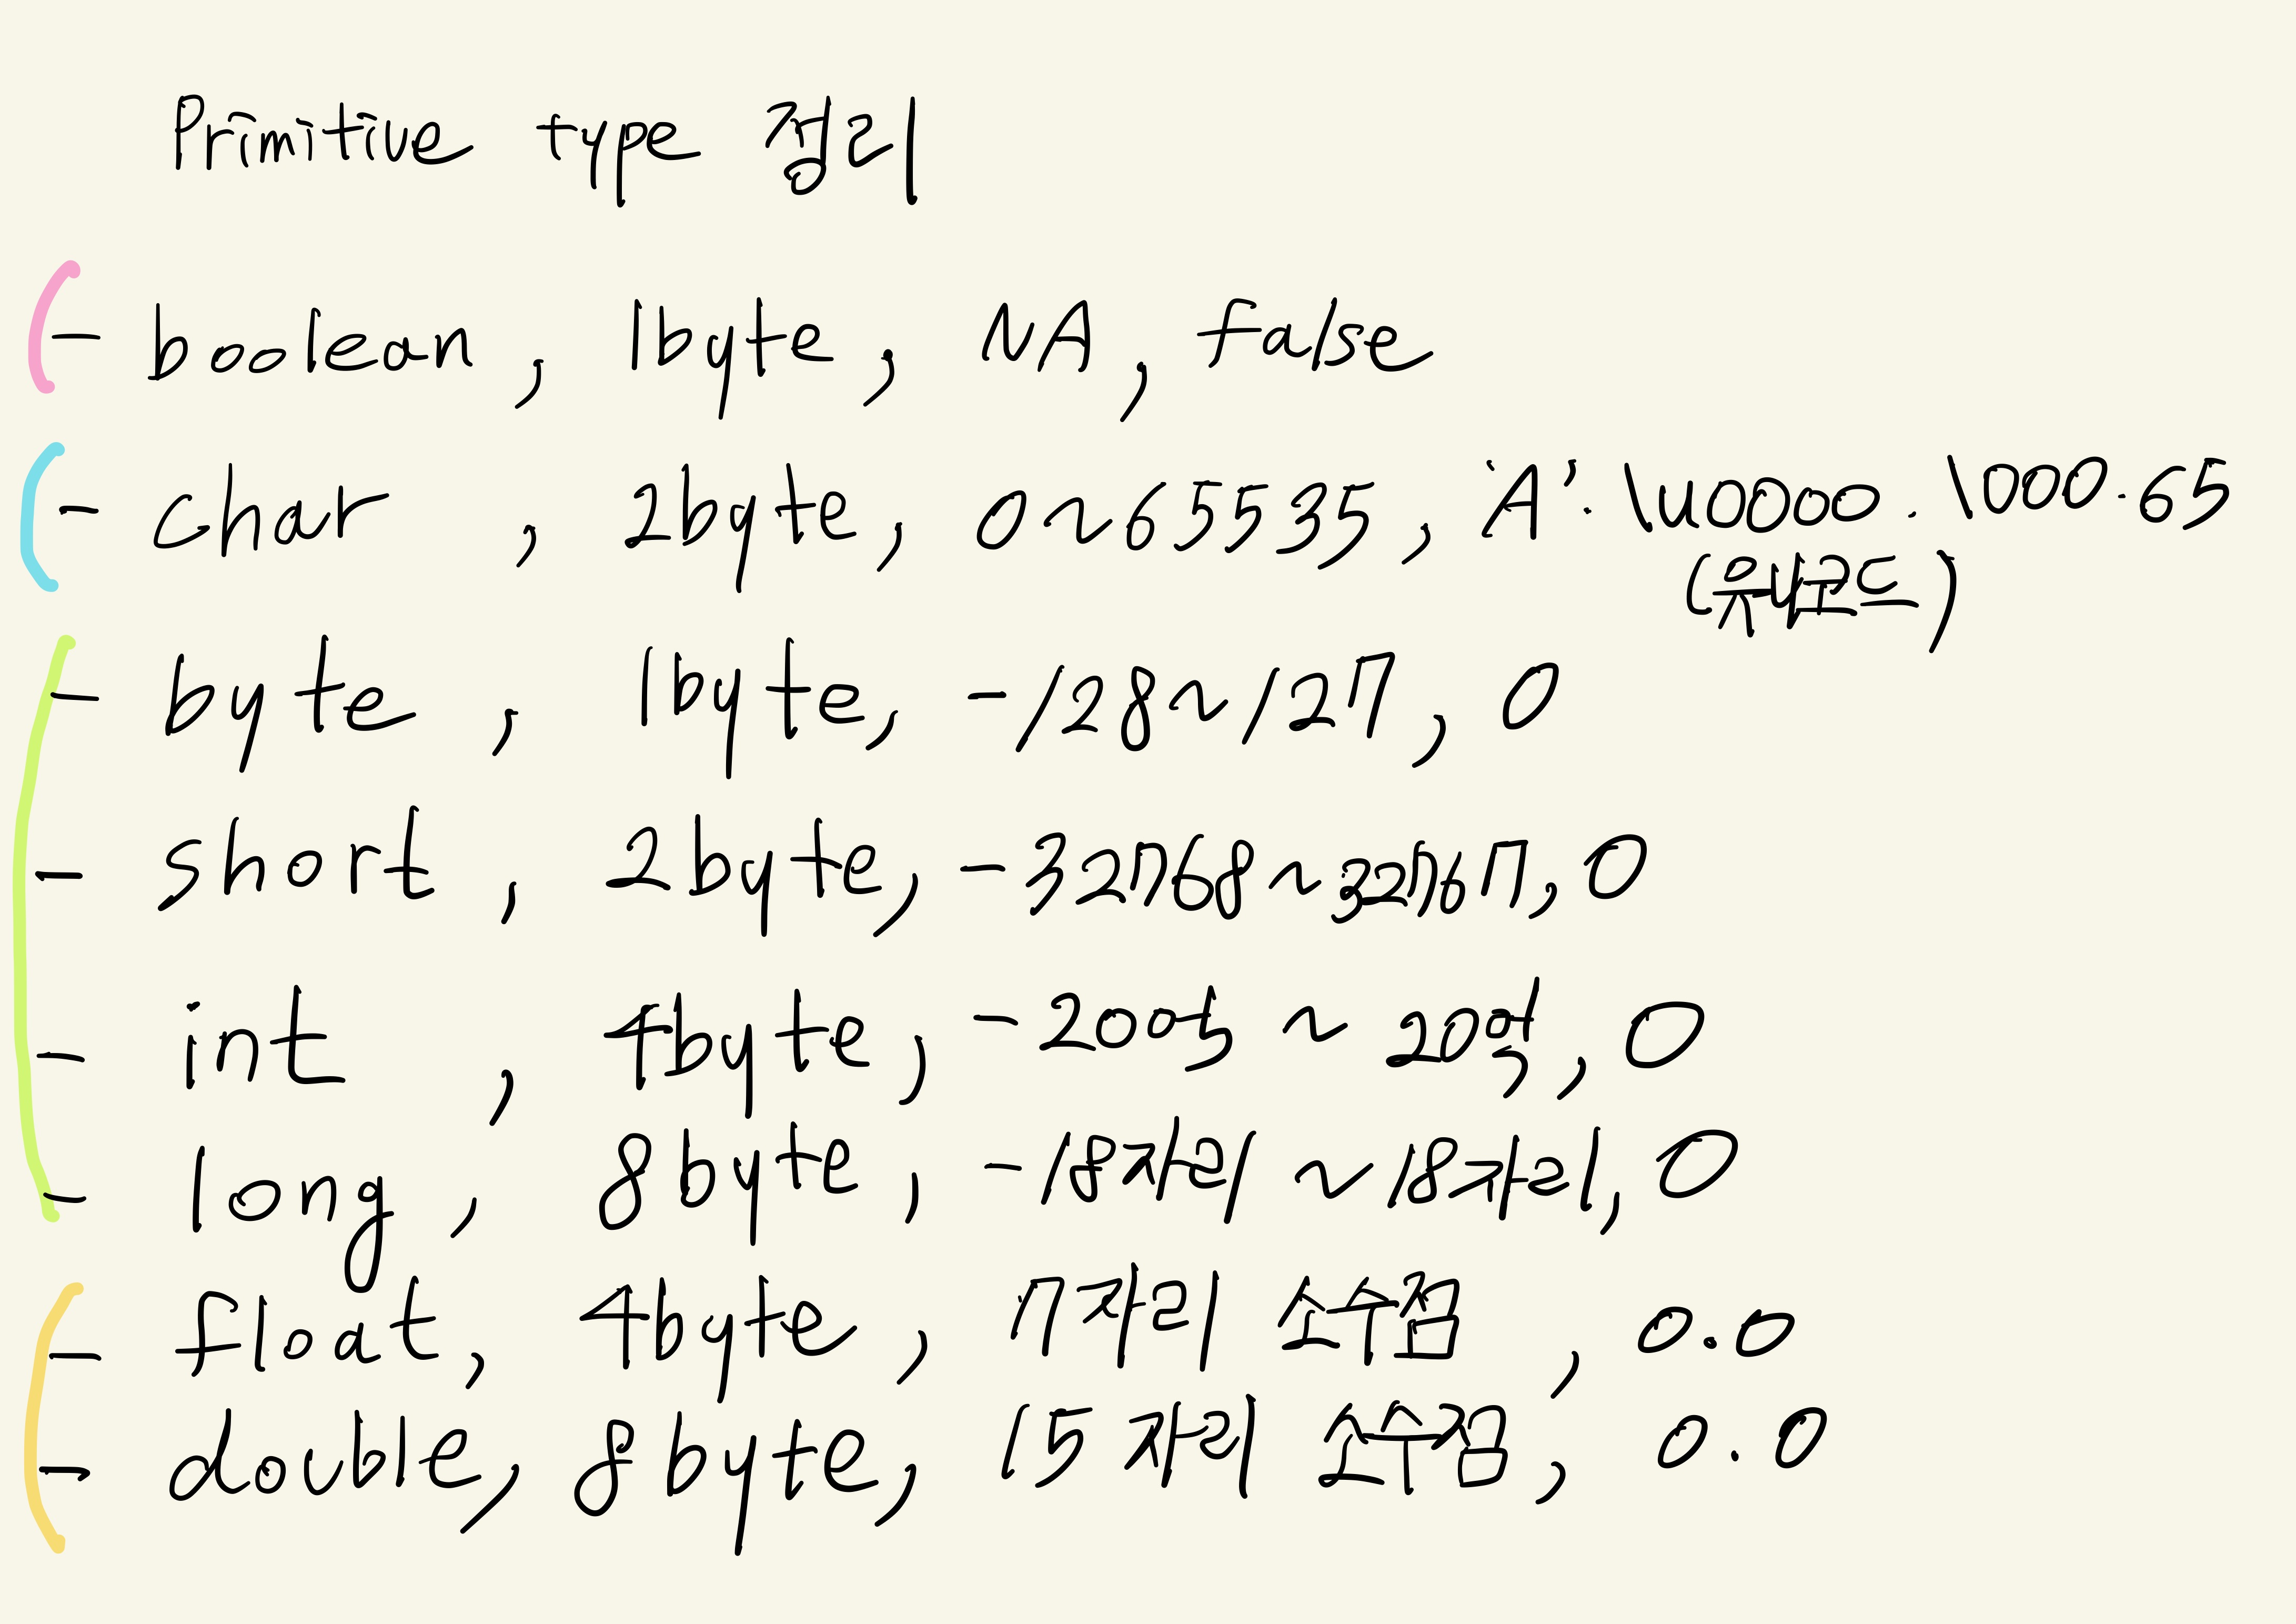 Primitive type 정리
- boolean, 1byte, NA, false
- char, 2byte, 0~65535, 'A'. \u0000. \000.65
(유니코드)
- byte, 1byte, -128~127, 0
- short, 2byte, -32768~32767, 0
- int, 4byte, -20억 ~ 20억, 0
- long, 8byte, -18자리 ~ 18자리, 0
- float, 4byte, 7자리 소수점, 0.0
- double, 8byte, 15자리 소수점, 0.0